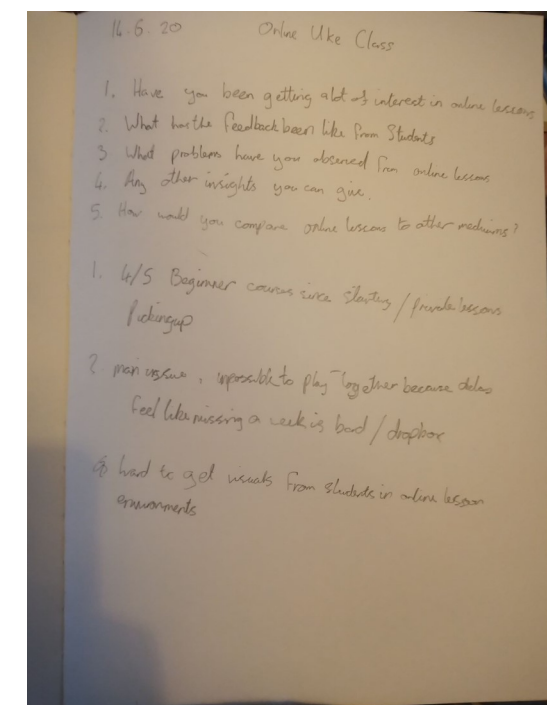 14.6.20 Online Uke Class
1. Have you been getting a lot of interest in online lessons
2. What has the feedback been like from Students
3 What problems have you observed from online lessons
4. Any other insights you can give.
5. How would you compare online lessons to other mediums?
1. 4/5 Beginner courses since starting / private lessons
Picking up
2 main issue, impossible to play together because delay
feel like missing a week is bad / dropbox
hard to get visuals from students in online lesson
environments